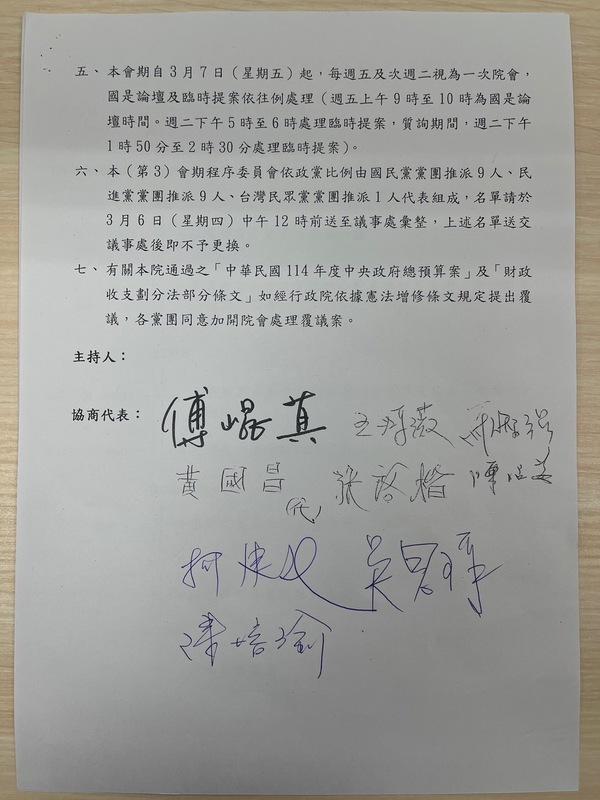 五、本會期自3月7日（星期五）起，每週五及次週二視為一次院會，
國是論壇及臨時提案依往例處理（週五上午9時至10時為國是論
壇時間。週二下午5時至6時處理臨時提案，質詢期間，週二下午
1時50分至2時30分處理臨時提案）。
六、本（第3）會期程序委員會依政黨比例由國民黨黨團推派9人、民
進黨黨團推派9人、台灣民眾黨黨團推派1人代表組成，名單請於
3月6日（星期四）中午12時前送至議事處彙整，上述名單送交
議事處後即不予更換。
七、有關本院通過之「中華民國114年度中央政府總預算案」及「財政
收支劃分法部分條文」如經行政院依據憲法增修條文規定提出覆
議，各黨團同意加開院會處理覆議案。
主持人：
協商代表：傅崐萁 王鴻薇
黃國昌（代）張啓楷
柯建 吳思瑤
陳培瑜